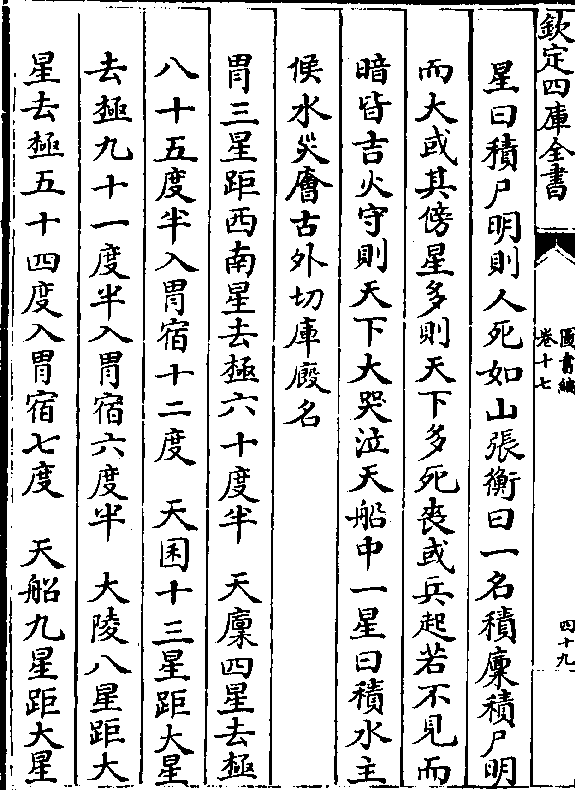 欽定四庫全書
圖書編
卷十七
四十九
星曰積尸明則人死如山張衡曰一名積廩積尸明
而大或其傍星多則天下多死喪或兵起若不見而
暗皆吉火守則天下大哭泣天船中一星曰積水主
候水災廥古外切庫廏名
胃三星距西南星去極六十度半　天廩四星去極
八十五度半入胃宿十二度　天囷十三星距大星
去極九十一度半入胃宿六度半　大陵八星距大
星去極五十四度入胃宿七度　天船九星距大星